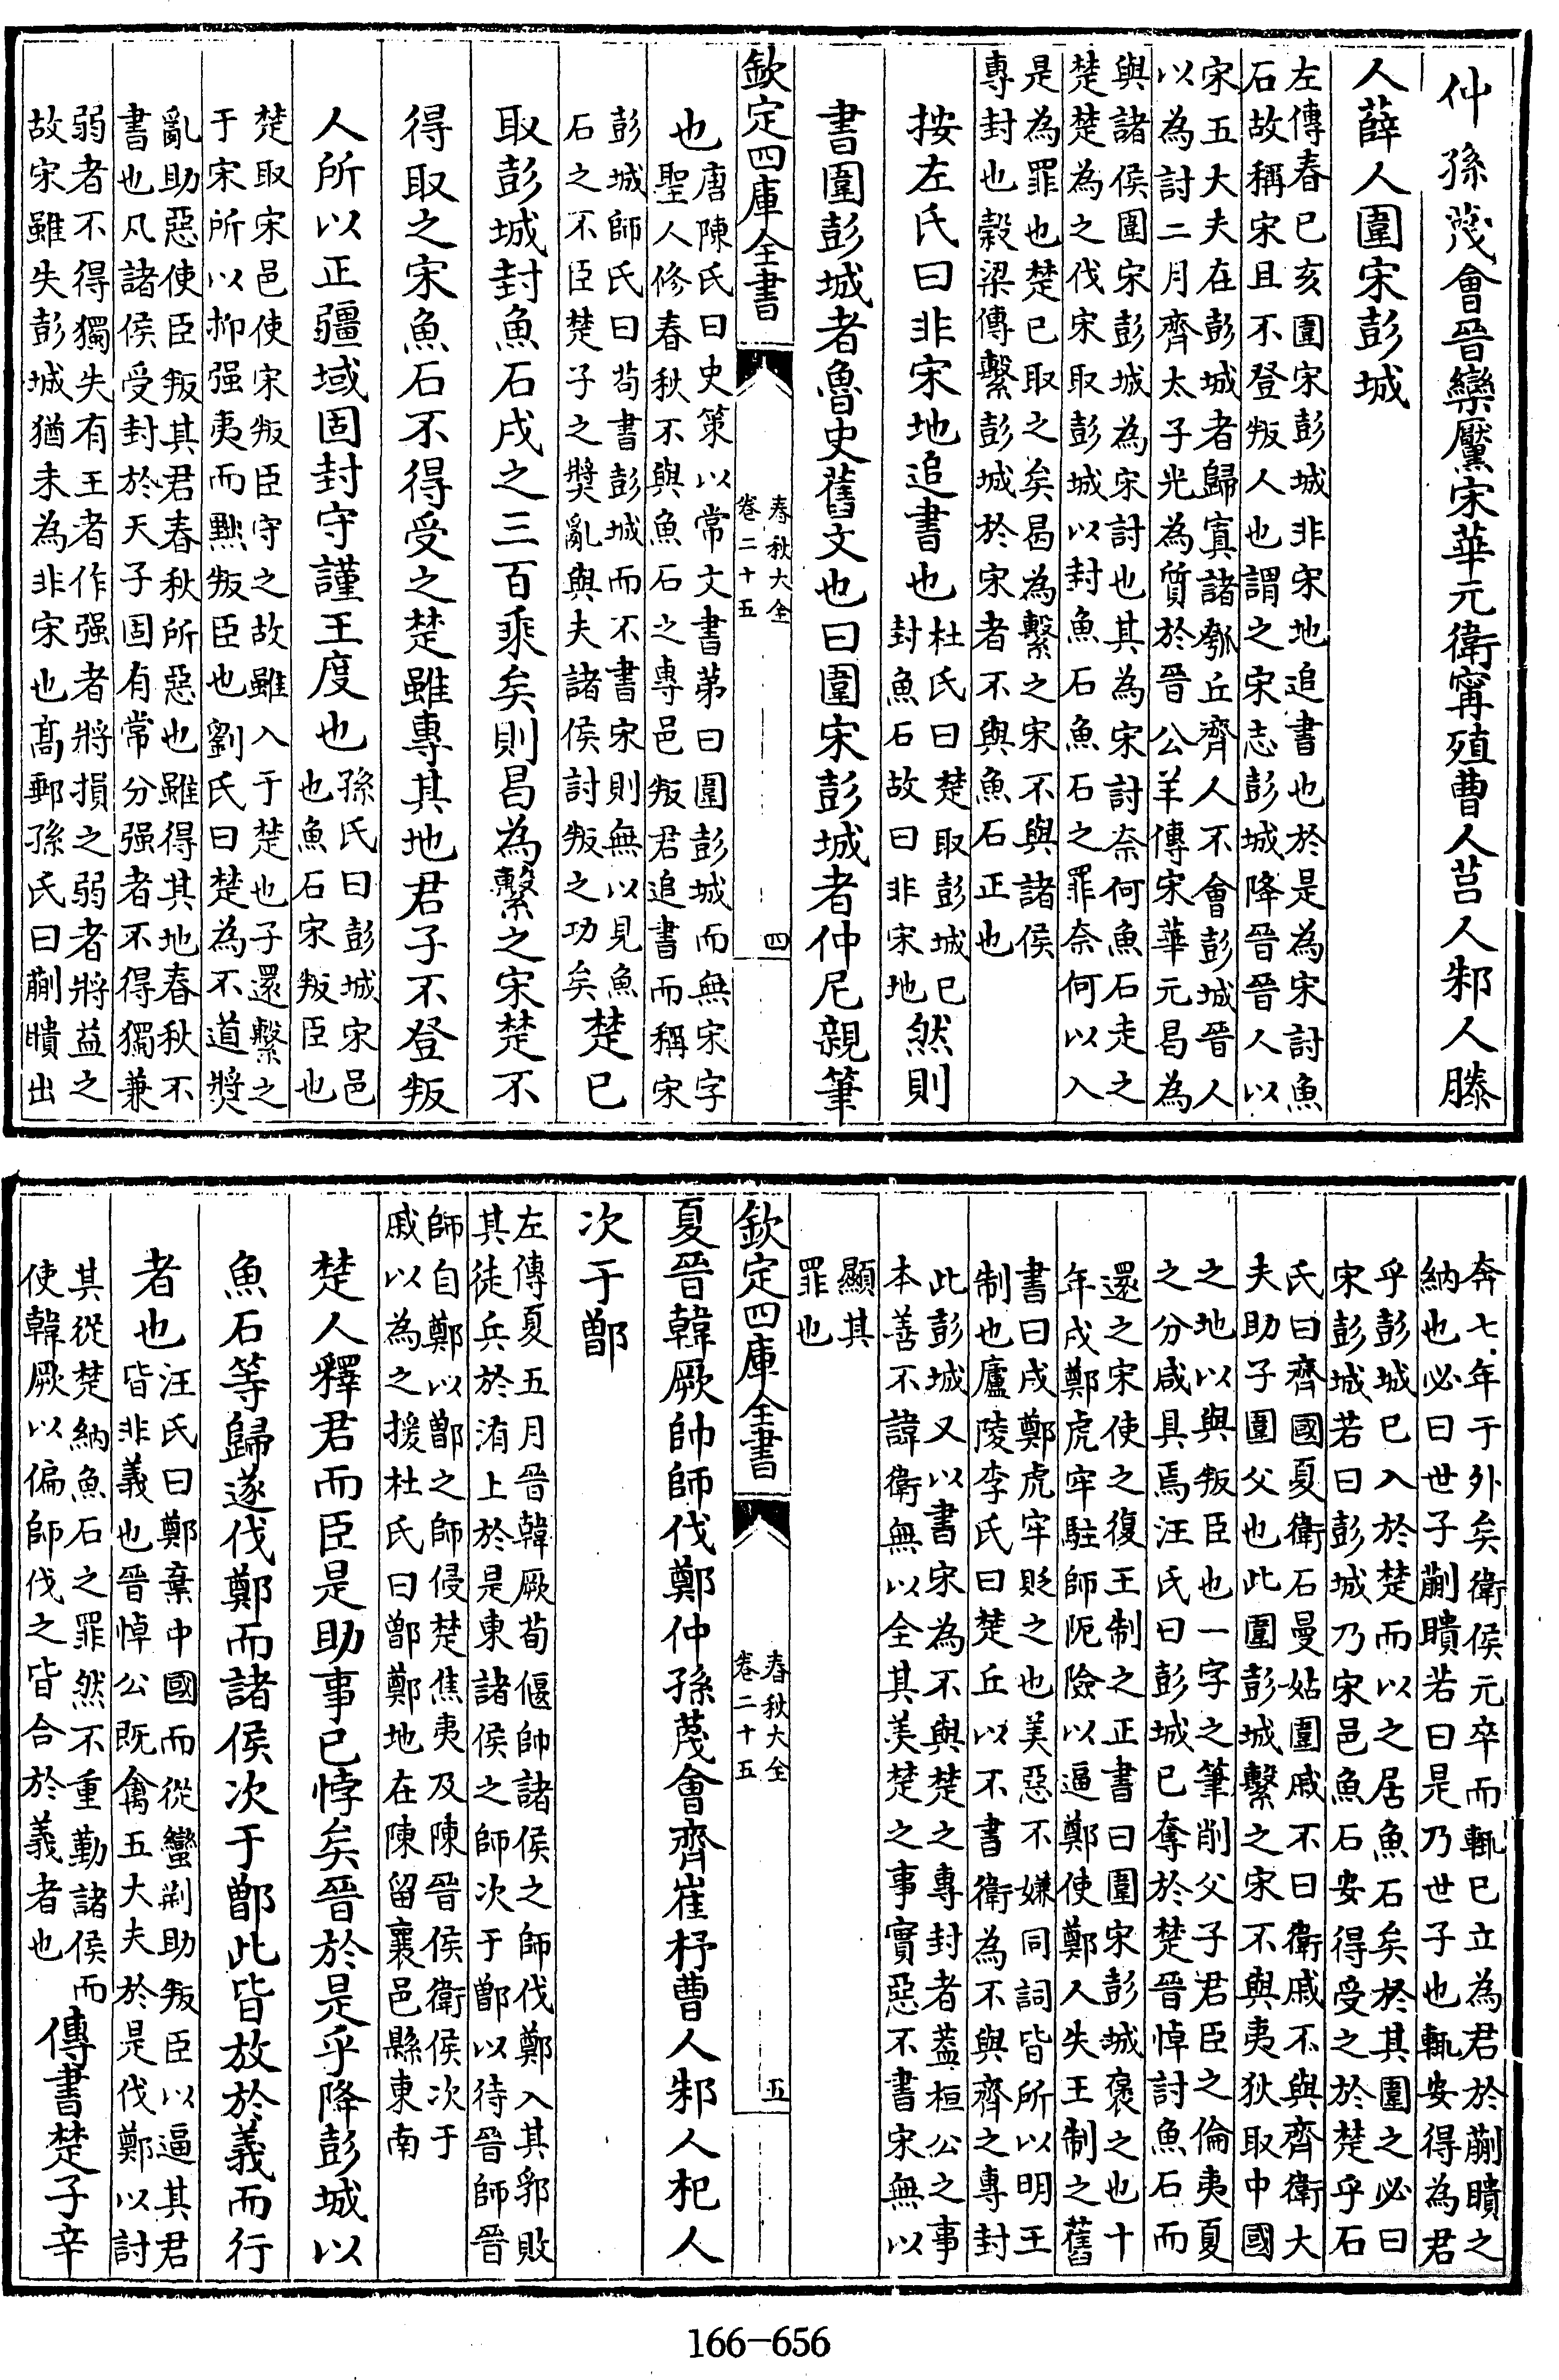 仲孫蔑會晉欒黶宋華元衛甯殖曹人莒人邾人滕
人薛人圍宋彭城
左傳春已亥圍宋彭城非宋地追書也於是為宋討魚
石故稱宋且不登叛人也謂之宋志彭城降晉晉人以
宋五大夫在彭城者歸寘諸瓠丘齊人不會彭城晉人
以為討二月齊太子光為質於晉公羊傳宋華元曷為
與諸侯圍宋彭城為宋討也其為宋討奈何魚石走之
楚楚為之伐宋取彭城以封魚石魚石之罪奈何以入
是為罪也楚已取之矣曷為繫之宋不與諸侯
專封也穀梁傳繫彭城於宋者不與魚石正也
按左氏曰非宋地追書也杜氏曰楚取彭城已
封魚石故曰非宋地然則
書圍彭城者魯史舊文也曰圍宋彭城者仲尼親筆
欽定四庫全書
春秋大全
卷二十五
四
也唐陳氏曰史策以常文書第曰圍彭城而無宋字
聖人修春秋不與魚石之專邑叛君追書而稱宋
彭城師氏曰茍書彭城而不書宋則無以見魚
石之不臣楚子之獎亂與夫諸侯討叛之功矣楚已
取彭城封魚石戍之三百乘矣則曷為繫之宋楚不
得取之宋魚石不得受之楚雖專其地君子不登叛
人所以正疆域固封守謹王度也孫氏曰彭城宋邑
也魚石宋叛臣也
楚取宋邑使宋叛臣守之故雖入于楚也子還繫之
于宋所以抑强夷而黜叛臣也劉氏曰楚為不道獎
亂助惡使臣叛其君春秋所惡也雖得其地春秋不
書也凡諸侯受封於天子固有常分强者不得獨兼
弱者不得獨失有王者作强者將損之弱者將益之
故宋雖失彭城猶未為非宋也髙郵孫氏曰蒯聵出
奔七年于外矣衛侯元卒而輒已立為君於蒯聵之
納也必曰世子蒯聵若曰是乃世子也輒安得為君
乎彭城已入於楚而以之居魚石矣於其圍之必曰
宋彭城若曰彭城乃宋邑魚石安得受之於楚乎石
氏曰齊國夏衛石曼姑圍戚不曰衛戚不與齊衛大
夫助子圍父也此圍彭城繫之宋不與夷狄取中國
之地以與叛臣也一字之筆削父子君臣之倫夷夏
之分咸具焉汪氏曰彭城已奪於楚晉悼討魚石而
還之宋使之復王制之正書曰圍宋彭城褒之也十
年戍鄭虎牢駐師阨險以逼鄭使鄭人失王制之舊
書曰戍鄭虎牢貶之也美惡不嫌同詞皆所以明王
制也廬陵李氏曰楚丘以不書衛為不與齊之專封
此彭城又以書宋為不與楚之專封者蓋桓公之事
本善不諱衛無以全其美楚之事實惡不書宋無以
顯其
罪也
欽定四庫全書
春秋大全
卷二十五
五
夏晉韓厥帥師伐鄭仲孫蔑會齊崔杼曹人邾人杞人
次于鄫
左傳夏五月晉韓厥荀偃帥諸侯之師伐鄭入其郛敗
其徒兵於洧上於是東諸侯之師次于鄫以待晉師晉
師自鄭以鄫之師侵楚焦夷及陳晉侯衛侯次于
戚以為之援杜氏曰鄫鄭地在陳留襄邑縣東南
楚人釋君而臣是助事已悖矣晉於是乎降彭城以
魚石等歸遂伐鄭而諸侯次于鄫此皆放於義而行
者也汪氏曰鄭棄中國而從蠻荆助叛臣以逼其君
皆非義也晉悼公既禽五大夫於是伐鄭以討
其從楚納魚石之罪然不重勤諸侯而
使韓厥以偏師伐之皆合於義者也傳書楚子辛
166-656